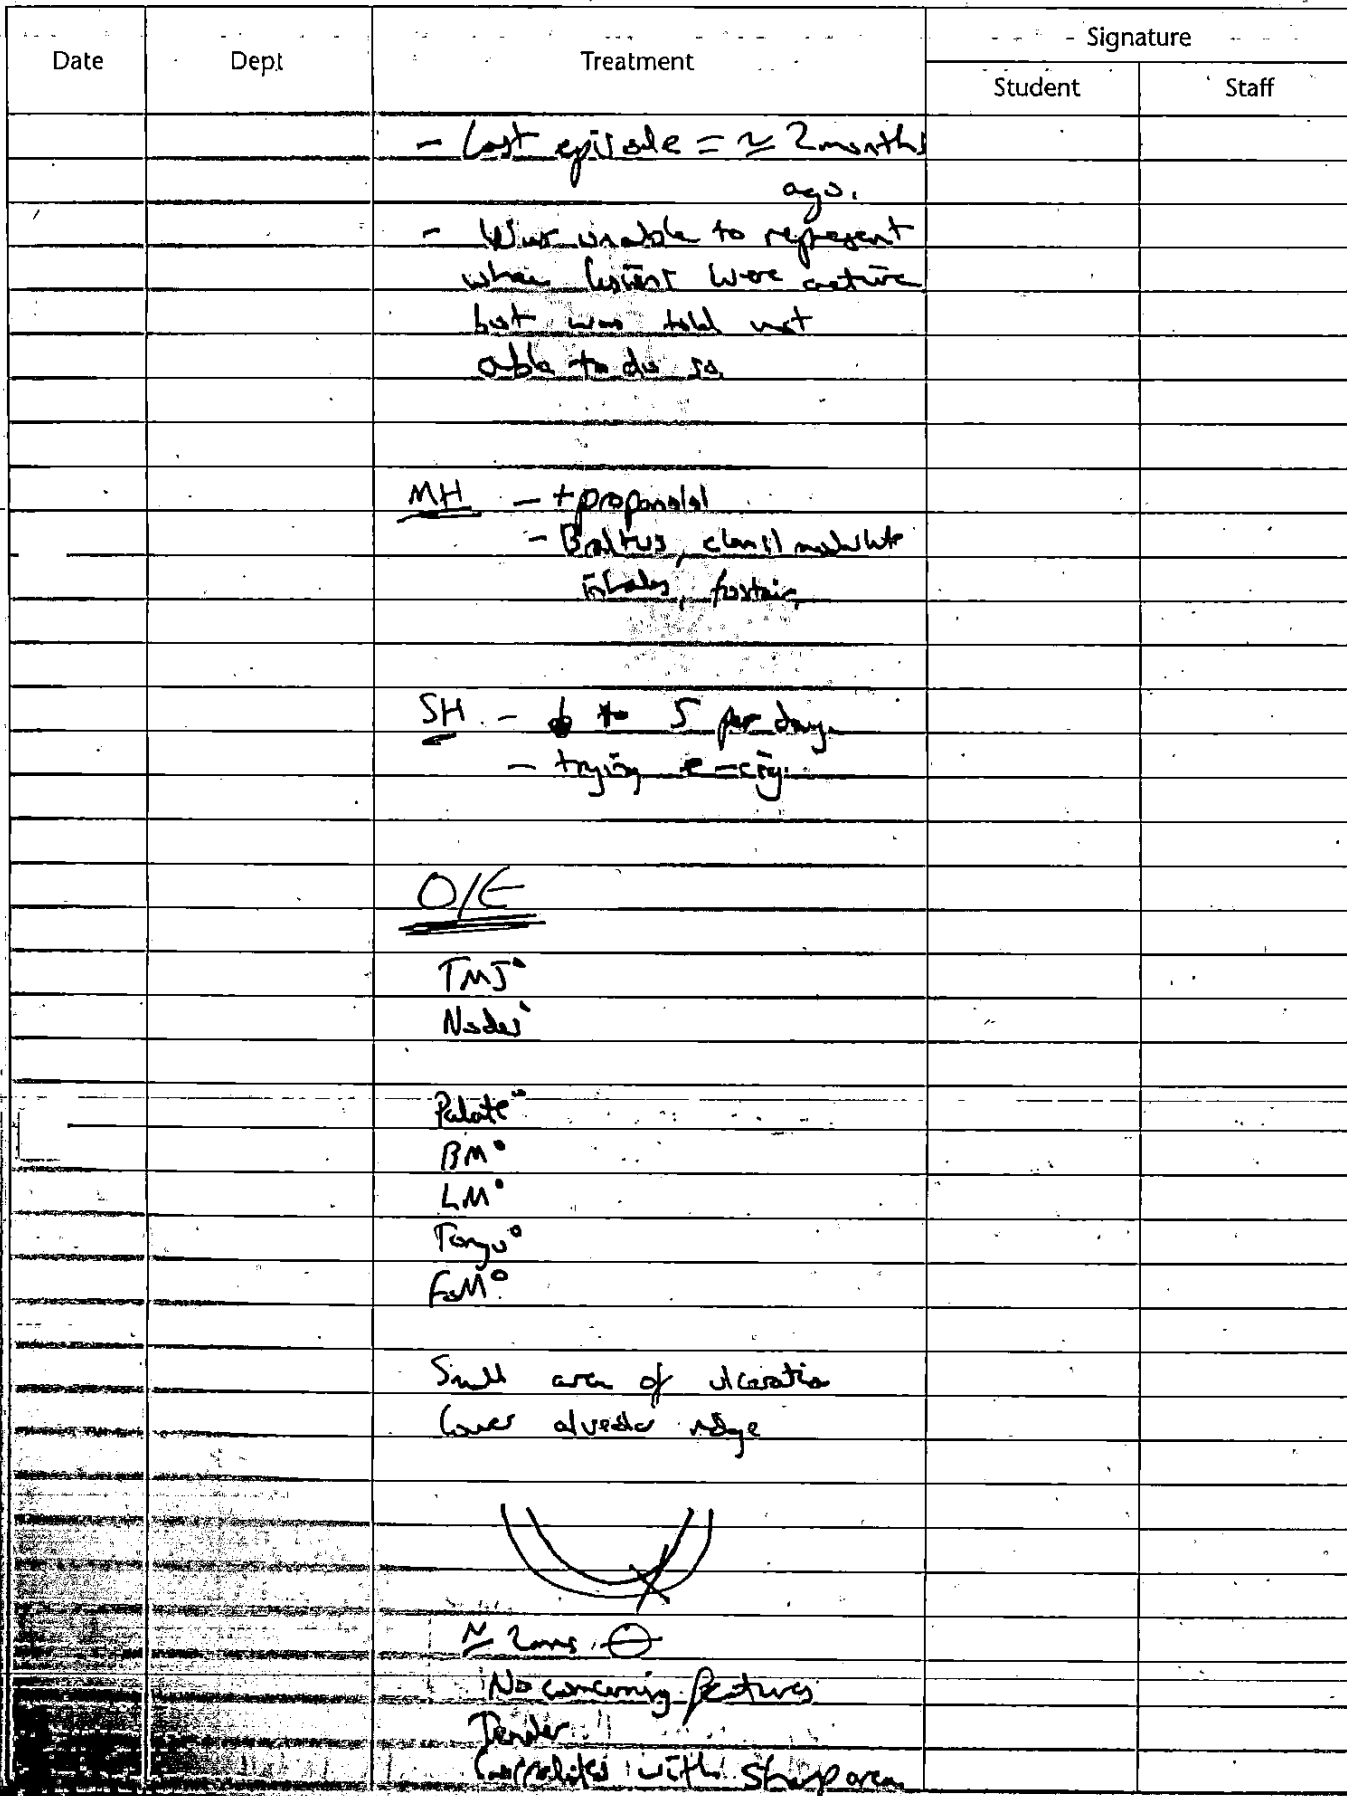 Date Dept Treatment Signature
Student Staff
- Last episode = ≃ 2 months
ago.
- Was unable to represent
when lesions were active
but was told not
able to do so.
MH - + propanolol
- Braltus,
inhaler, fostair,
SH - ↓ to 5 per day.
- trying e-cig.
O/E
TMJ°
Nodes°
Palate°
BM°
LM°
Tongue°
FoM°
Small area of ulceration
lower alveolar ridge
≃ 2mms
No concerning features
Tender
Correlates with sharp area